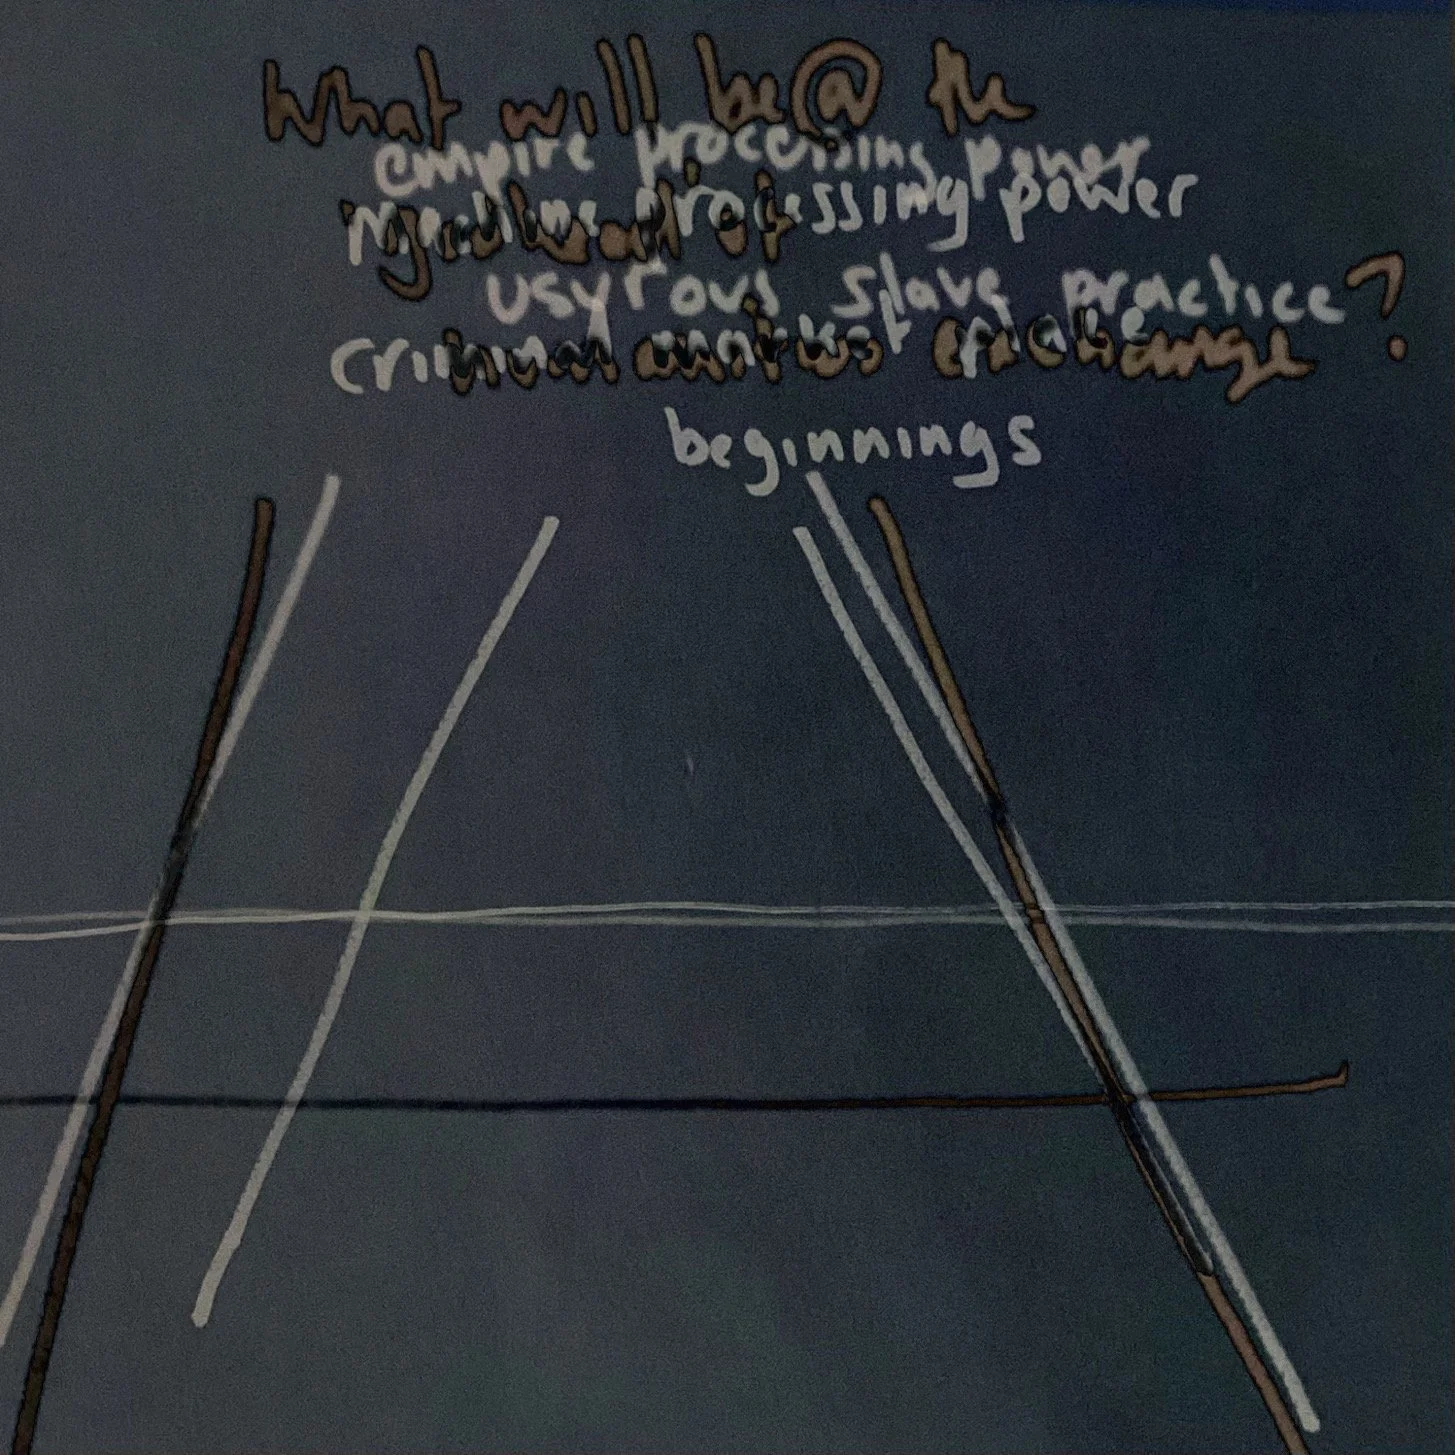 What will be@ the
empire processing power
machine processing power
usyrous slave practice?
criminal market exchange
beginnings